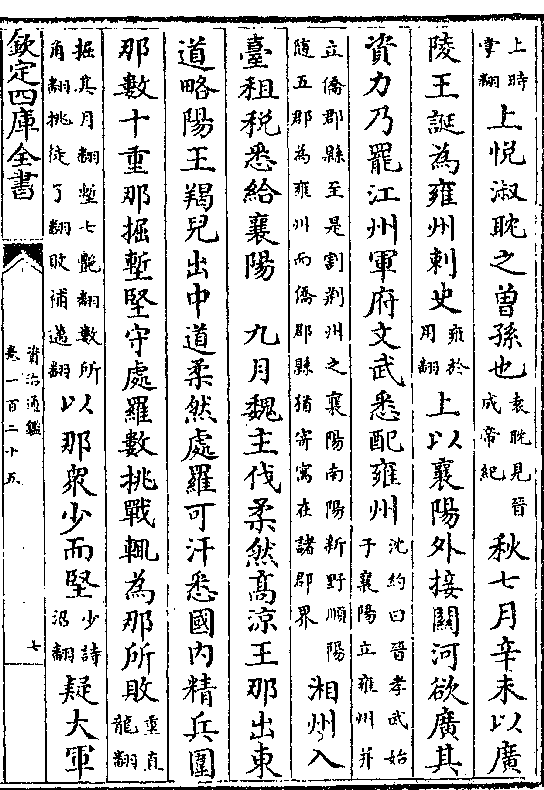 上時
掌翻
上悦淑耽之曾孫也
袁耽見晉
成帝紀
秋七月辛未以廣
陵王誕為雍州刺史
雍於
用翻
上以襄陽外接關河欲廣其
資力乃罷江州軍府文武悉配雍州
沈約曰晉孝武始
于襄陽立雍州并
立僑郡縣至是割荆州之襄陽南陽新野順陽
隨五郡為雍州而僑郡縣猶寄寓在諸郡界
湘州入
臺租税悉給襄陽　九月魏主伐柔然高涼王那出東
道略陽王羯兒出中道柔然處羅可汗悉國内精兵圍
那數十重那掘塹堅守處羅數挑戰輒為那所敗
重直
龍翻
掘其月翻塹七艶翻數所
角翻挑徒了翻敗補邁翻
以那衆少而堅
少詩
沼翻
疑大軍
欽定四庫全書
資治通鑑
卷一百二十五
七